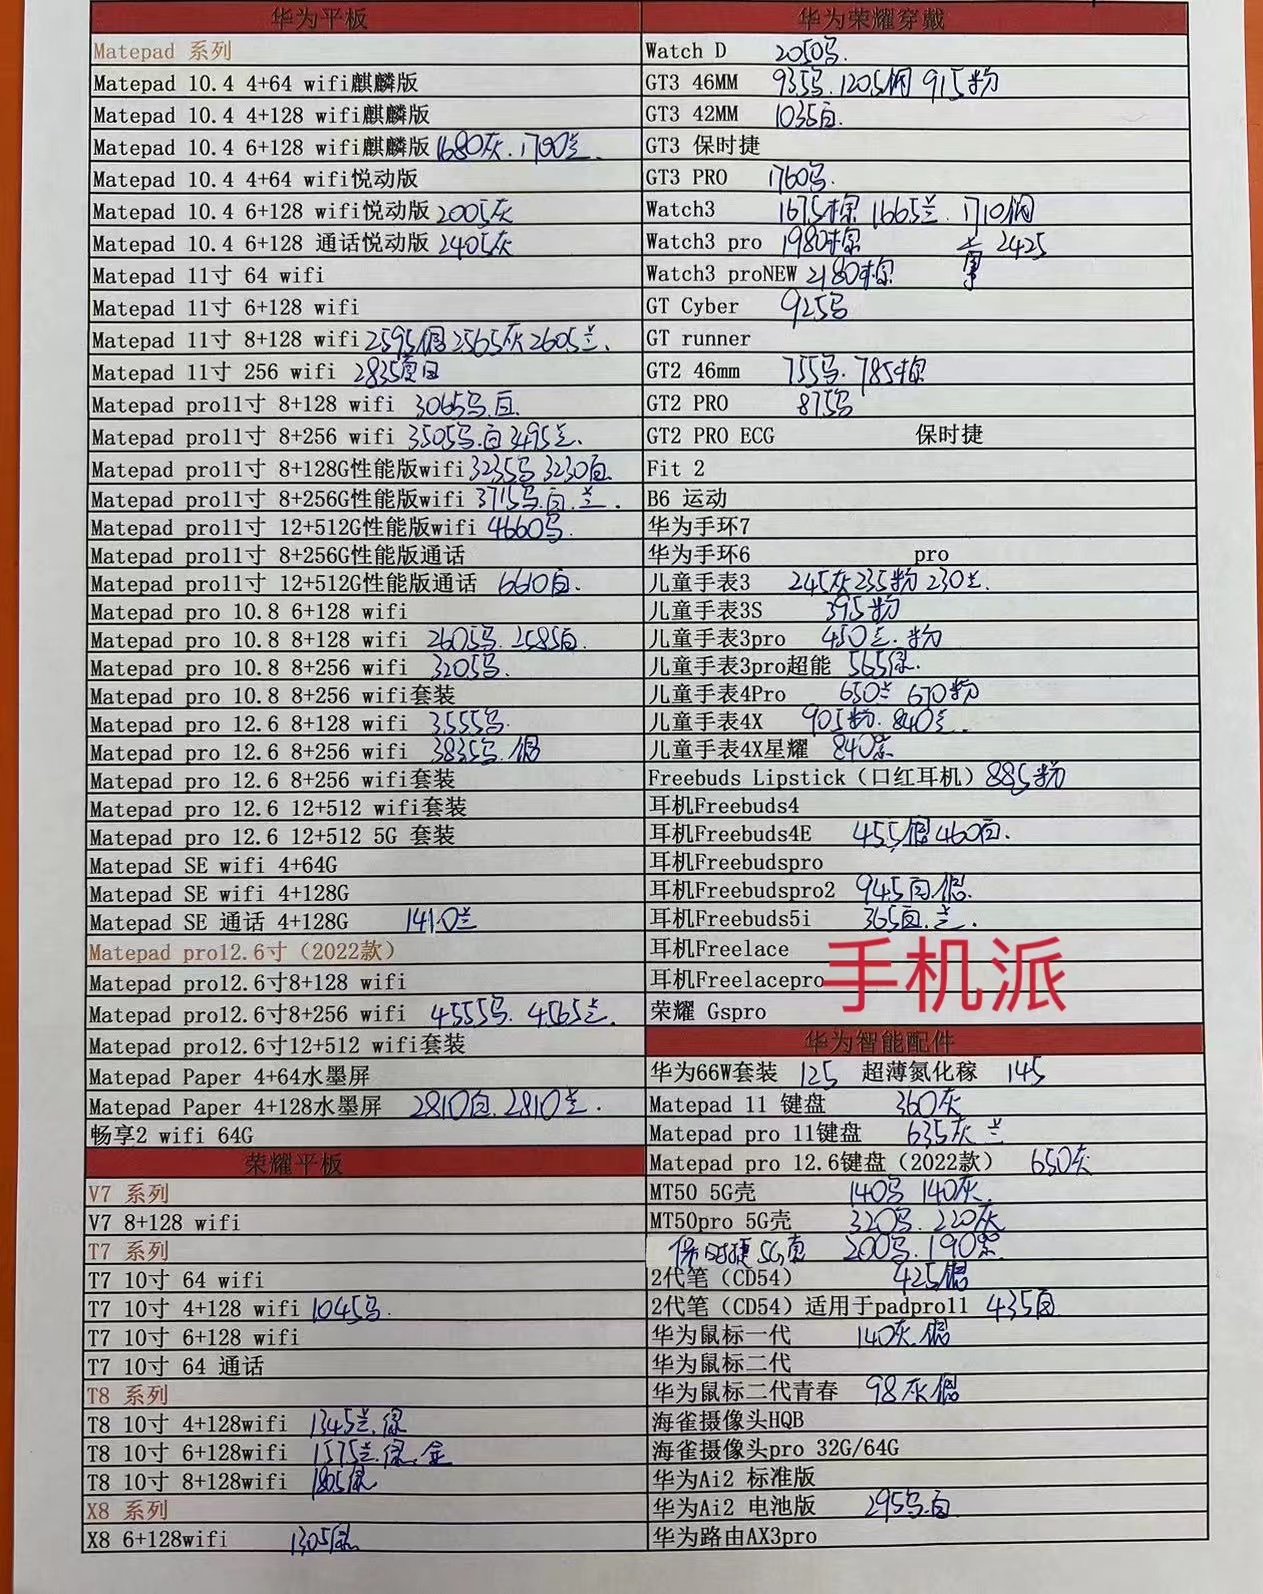 华为平板
Matepad 系列
Matepad 10.4 4+64 wifi麒麟版
Matepad 10.4 4+128 wifi麒麟版
Matepad 10.4 6+128 wifi麒麟版 1680灰. 1700兰.
Matepad 10.4 4+64 wifi悦动版
Matepad 10.4 6+128 wifi悦动版 2005灰
Matepad 10.4 6+128 通话悦动版 2405灰
Matepad 11寸 64 wifi
Matepad 11寸 6+128 wifi
Matepad 11寸 8+128 wifi 2595银 2565灰 2605兰.
Matepad 11寸 256 wifi 2835
Matepad pro11寸 8+128 wifi 3065黑.白.
Matepad pro11寸 8+256 wifi 3505黑.白 3495兰.
Matepad pro11寸 8+128G性能版wifi 3235黑 3230白.
Matepad pro11寸 8+256G性能版wifi 3715黑.白.兰.
Matepad pro11寸 12+512G性能版wifi 4660黑.
Matepad pro11寸 8+256G性能版通话
Matepad pro11寸 12+512G性能版通话 6610白.
Matepad pro 10.8 6+128 wifi
Matepad pro 10.8 8+128 wifi 2605黑. 2585白.
Matepad pro 10.8 8+256 wifi 3205黑.
Matepad pro 10.8 8+256 wifi套装
Matepad pro 12.6 8+128 wifi 3555黑.
Matepad pro 12.6 8+256 wifi 3835黑.银
Matepad pro 12.6 8+256 wifi套装
Matepad pro 12.6 12+512 wifi套装
Matepad pro 12.6 12+512 5G 套装
Matepad SE wifi 4+64G
Matepad SE wifi 4+128G
Matepad SE 通话 4+128G 1410兰
Matepad pro12.6寸（2022款）
Matepad pro12.6寸8+128 wifi
Matepad pro12.6寸8+256 wifi 4555黑. 4565兰.
Matepad pro12.6寸12+512 wifi套装
Matepad Paper 4+64水墨屏
Matepad Paper 4+128水墨屏 2810白. 2810兰.
畅享2 wifi 64G
荣耀平板
V7 系列
V7 8+128 wifi
T7 系列
T7 10寸 64 wifi
T7 10寸 4+128 wifi 1045黑.
T7 10寸 6+128 wifi
T7 10寸 64 通话
T8 系列
T8 10寸 4+128wifi 1345兰.绿
T8 10寸 6+128wifi 1575兰.绿.金
T8 10寸 8+128wifi 1805绿
X8 系列
X8 6+128wifi 1305绿
华为荣耀穿戴
Watch D 2050黑.
GT3 46MM 935黑. 1205钢 915粉
GT3 42MM 1035白.
GT3 保时捷
GT3 PRO 1760黑.
Watch3 1675棕 1665兰. 1710钢
Watch3 pro 1980棕 2425
Watch3 proNEW 2180棕
GT Cyber 925黑
GT runner
GT2 46mm 755黑. 785棕
GT2 PRO 875黑
GT2 PRO ECG 保时捷
Fit 2
B6 运动
华为手环7
华为手环6 pro
儿童手表3 245灰 235粉 230兰.
儿童手表3S 395粉
儿童手表3pro 450兰.粉
儿童手表3pro超能 565绿.
儿童手表4Pro 650兰 670粉
儿童手表4X 905粉. 840兰.
儿童手表4X星耀 840紫
Freebuds Lipstick（口红耳机）885粉
耳机Freebuds4
耳机Freebuds4E 455银 460白.
耳机Freebudspro
耳机Freebudspro2 945白.银.
耳机Freebuds5i 365白.兰.
耳机Freelace
耳机Freelacepro
手机派
荣耀 Gspro
华为智能配件
华为66W套装 125 超薄氮化稼 145
Matepad 11 键盘 360灰
Matepad pro 11键盘 635灰 兰
Matepad pro 12.6键盘（2022款） 650灰
MT50 5G壳 140黑 140灰.
MT50pro 5G壳 320黑. 220灰
保时捷5G壳 200黑. 190紫
2代笔（CD54） 425银
2代笔（CD54）适用于padpro11 435白
华为鼠标一代 140灰.银
华为鼠标二代
华为鼠标二代青春 98灰银
海雀摄像头HQB
海雀摄像头pro 32G/64G
华为Ai2 标准版
华为Ai2 电池版 295黑.白
华为路由AX3pro